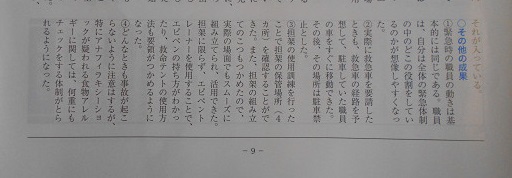 それが入っている。
〇その他の成果
①緊急時の職員の動きは基
本的には同じである。職員
は、自分は全体の緊急体制
の中のどこの役割をしてい
るのかが想像しやすくなっ
た。
②実際に救急車を要請した
ときも、救急車の経路を予
想して、駐車していた職員
の車をすぐに移動できた。
その後、その場所は駐車禁
止とした。
③担架の使用訓練を行った
ことで担架の保管場所（4
カ所）を確認することがで
きた。また、担架の組み立
てのこつもつかめたので、
実際の場面でもスムーズに
組み立てられ、活用できた。
担架に限らず、エピペント
レーナーを使用することで、
エピペンの持ち方がわかっ
たり、救命テントの使用方
法も要領がつかめるように
なった。
④どんなときも事故が起こ
らないように注意はするが、
特にアナフィラキシーショ
ックが疑われる食物アレル
ギーに関しては、何重にも
チェックをする体制がとら
れるようになった。
－9－